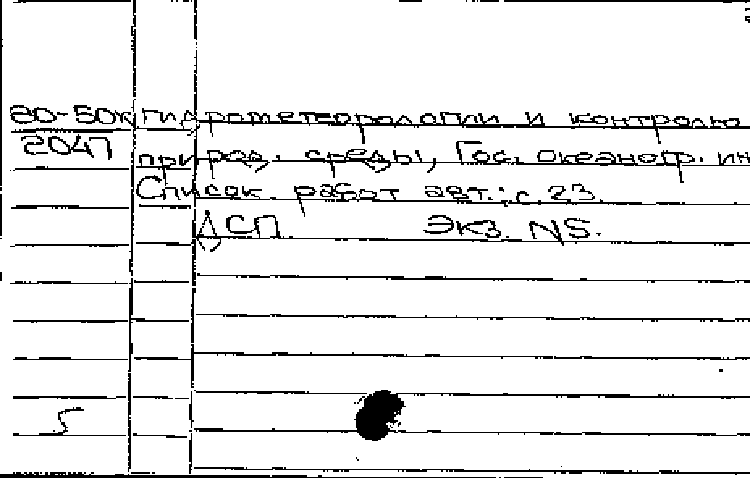 80-50к гидрометеорологии и контролю
2047 природ. среды, Гос. океаногр. ин
Список работ авт.: с. 23.
ДСП. Экз. N5.
5